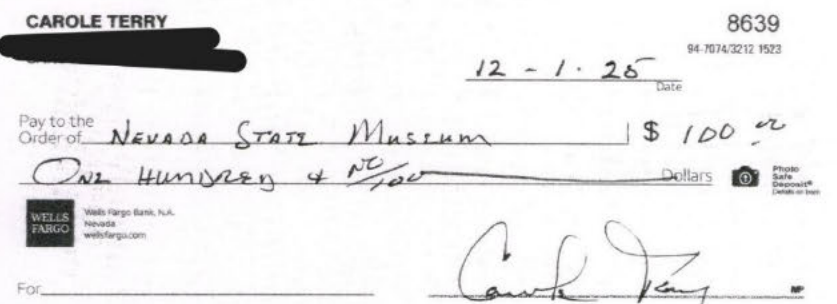 CAROLE TERRY
8639
94-7074/3212 1523
12 - 1 - 25
Date
Pay to the
Order of NEVADA STATE MUSEUM $ 100 00
ONE HUNDRED & NO/100 Dollars
Photo
Safe
Deposit®
Details on back
WELLS
FARGO
Wells Fargo Bank, N.A.
Nevada
wellsfargo.com
For
Carole Terry
MP